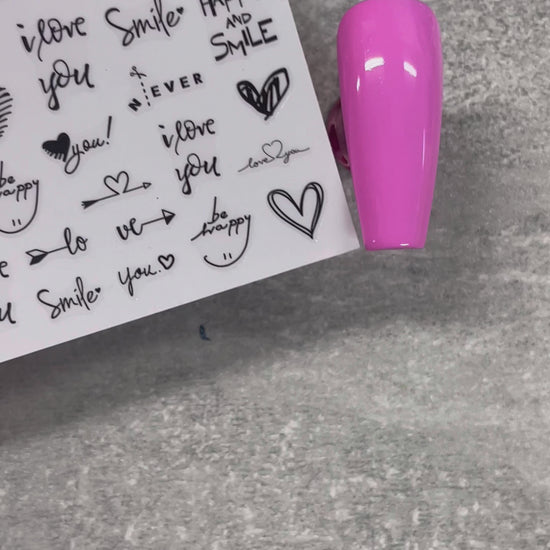 i love
you
Smile
AND
SMILE
NEVER
you!
i love
you
love you
be
happy
lo
ve
be
happy
Smile
you.